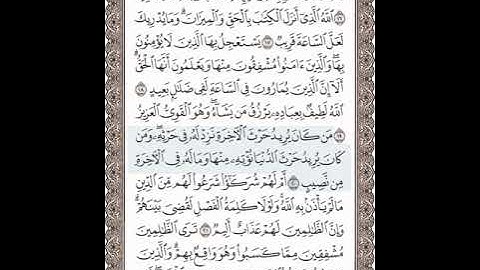 ٱللَّهُ ٱلَّذِىٓ أَنزَلَ ٱلْكِتَٰبَ بِٱلْحَقِّ وَٱلْمِيزَانَ ۗ وَمَا يُدْرِيكَ
لَعَلَّ ٱلسَّاعَةَ قَرِيبٌ ١٧ يَسْتَعْجِلُ بِهَا ٱلَّذِينَ لَا يُؤْمِنُونَ
بِهَا ۖ وَٱلَّذِينَ ءَامَنُوا۟ مُشْفِقُونَ مِنْهَا وَيَعْلَمُونَ أَنَّهَا ٱلْحَقُّ ۗ
أَلَآ إِنَّ ٱلَّذِينَ يُمَارُونَ فِى ٱلسَّاعَةِ لَفِى ضَلَٰلٍۭ بَعِيدٍ ١٨
ٱللَّهُ لَطِيفٌۢ بِعِبَادِهِۦ يَرْزُقُ مَن يَشَآءُ ۖ وَهُوَ ٱلْقَوِىُّ ٱلْعَزِيزُ
١٩ مَن كَانَ يُرِيدُ حَرْثَ ٱلْءَاخِرَةِ نَزِدْ لَهُۥ فِى حَرْثِهِۦ ۖ وَمَن
كَانَ يُرِيدُ حَرْثَ ٱلدُّنْيَا نُؤْتِهِۦ مِنْهَا وَمَا لَهُۥ فِى ٱلْءَاخِرَةِ
مِن نَّصِيبٍ ٢٠ أَمْ لَهُمْ شُرَكَٰٓؤُا۟ شَرَعُوا۟ لَهُم مِّنَ ٱلدِّينِ
مَا لَمْ يَأْذَنۢ بِهِ ٱللَّهُ ۚ وَلَوْلَا كَلِمَةُ ٱلْفَصْلِ لَقُضِىَ بَيْنَهُمْ ۗ
وَإِنَّ ٱلظَّٰلِمِينَ لَهُمْ عَذَابٌ أَلِيمٌ ٢١ تَرَى ٱلظَّٰلِمِينَ
مُشْفِقِينَ مِمَّا كَسَبُوا۟ وَهُوَ وَاقِعٌۢ بِهِمْ ۗ وَٱلَّذِينَ